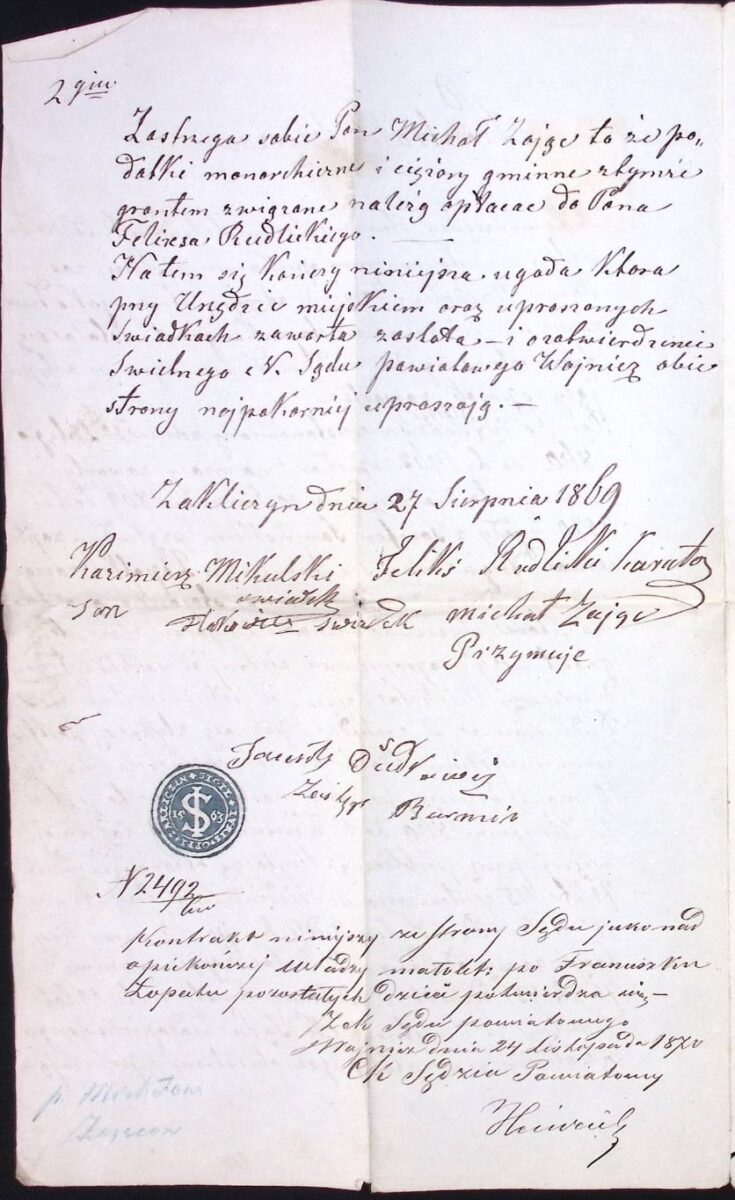 2 giu
Zastrzega sobie Pan Michał Zając to że po„
datki monarchiczne i ciężary gminne ztymże
grontem związane należą opłacac do Pana
Felixsa Rudlickiego. —
Na tem się kończy niniejsza ugoda Ktora
przy Urzędzie miejskiem oraz uproszonych
swiadkach zawarta została — i ozatwierdzenie
Swietnego c. k. Sądu powiatowego Wojnicz obie
strony najpokorniej upraszają. —
Zakliczyn dnia 27 Sierpnia 1869
Kazimierz Mikulski Feliks Rudlicki
swiadek
swiadek Michał Zając
Przymuje
Burmis
SIGIL
ZAKLICZIN
IS
1563
N 2492
Kontrakt niniejszy ze strony Sądu jako nad
opiekończej władzy małolet: po Franciszku
Łopatu pozostałych dzieci potwierdza się —
Z c k Sądu powiatowego
Wojnicz dnia 24 Listopada 1870
CK Sędzia Powiatowy
p. Michałow
Zającow